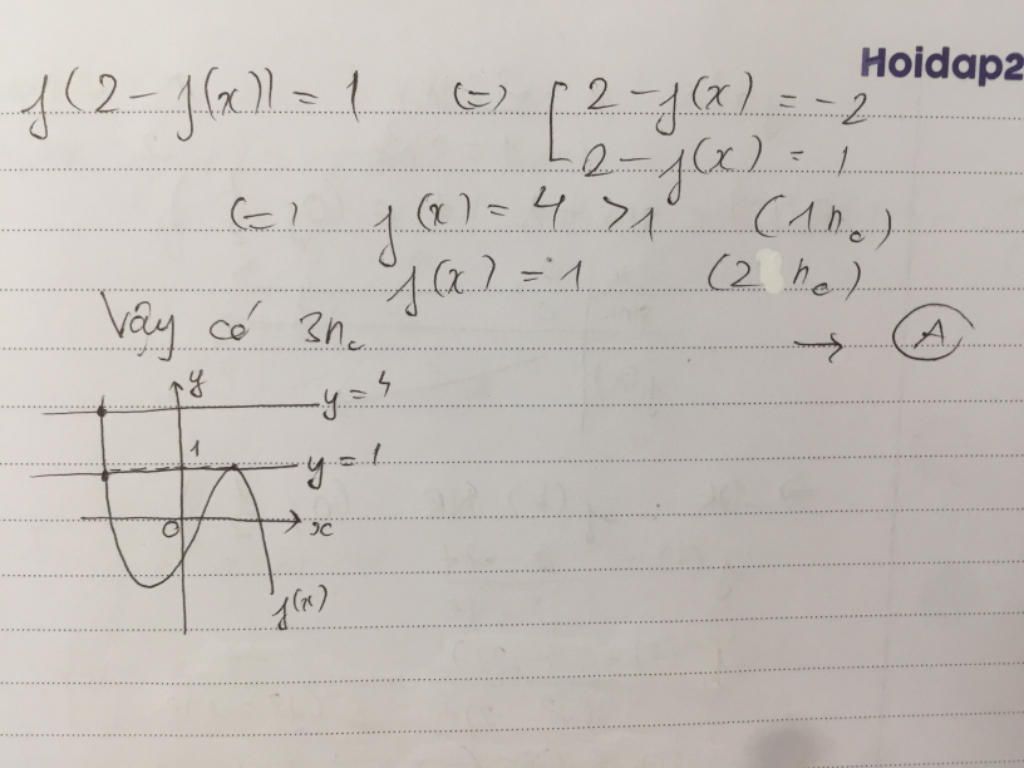 Hoidap2
f(2 - f(x)) = 1 (=) [ 2 - f(x) = -2
2 - f(x) = 1
(=) f(x) = 4 > 1 (1 nc)
f(x) = 1 (2 nc)
Vậy có 3nc → A
y
y = 4
1
y = 1
O
x
f(x)